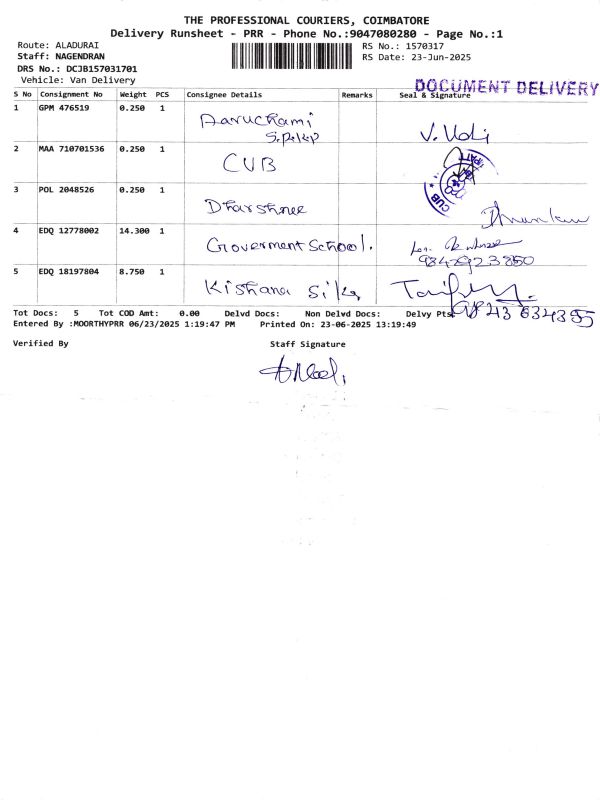 THE PROFESSIONAL COURIERS, COIMBATORE
Delivery Runsheet - PRR - Phone No.:9047080280 - Page No.:1
Route: ALADURAI RS No.: 1570317
Staff: NAGENDRAN RS Date: 23-Jun-2025
DRS No.: DCJB157031701
Vehicle: Van Delivery DOCUMENT DELIVERY
S No Consignment No Weight PCS Consignee Details Remarks Seal & Signature
1 GPM 476519 0.250 1
2 MAA 710701536 0.250 1 CUB CUB
3 POL 2048526 0.250 1 Dharshnee
4 EDQ 12778002 14.300 1 Goverment School.
5 EDQ 18197804 8.750 1 Kishana
Tot Docs: 5 Tot COD Amt: 0.00 Delvd Docs: Non Delvd Docs: Delvy Pts
Entered By :MOORTHYPRR 06/23/2025 1:19:47 PM Printed On: 23-06-2025 13:19:49
Verified By Staff Signature